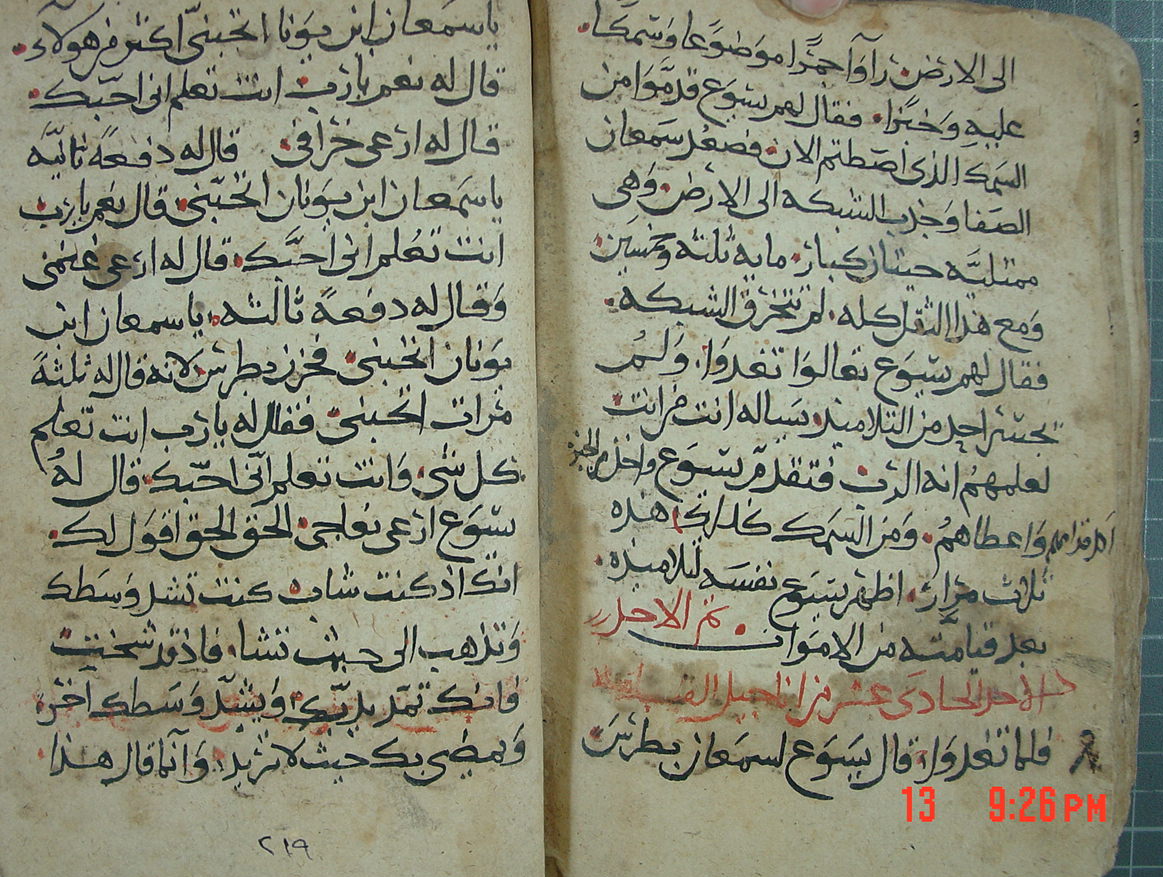 الى الارض رآوا جمرًا موضوعًا وسمكًا
عليه وخبزًا. فقال لهم يسوع قدموا من
السمك الذى اصطدتم الان فصعد سمعان
الصفا وجذب الشبكه الى الارض. وهى
ممتليه حيتان كبار. مايه ثلثه وخمسين
ومع هذا الثقل كله. لم تتخرق الشبكه.
فقال لهم يسوع تعالوا تغدوا. ولم
يجسر احد من التلاميذ يساله انت من انت
لعلمهم انه الرب فتقدم يسوع واخذ الخبز
واعطاهم. ومن السمك كذلك هذه
ثلاث مرار. اظهر يسوع نفسه لتلاميذه.
بعد قيامته من الاموات. تم الاحد
الاحد الحادى عشر من اناجيل
فلما تغدوا. قال يسوع لسمعان بطرس
ياسمعان ابن يونا اتحبنى اكثر من هولاء.
قال له نعم يارب انت تعلم انى احبك.
قال له ارعى خرافى قال له دفعةً ثانيةً
ياسمعان ابن يونان اتحبنى. قال نعم يارب
انت تعلم انى احبك. قال له ارعى غنمى
وقال له دفعةً ثالثه. ياسمعان ابن
يونان اتحبنى. فحزن بطرس لانه قال له ثلثةً
مرات اتحبنى. فقال له يارب انت تعلم
كل شى. وانت تعلم انى احبك. قال لهُ
يسوع ارعى نعاجى. الحق الحق اقول لك.
انك اذ كنت شاب كنت تشد وسطك
وتذهب الى حيث تشا. فاذ قد شخت
فانك تمد يديك ويشد وسطك آخر.
ويمضى بك حيث لا تريد. وآنما قال هذا
٢١٩
13 9:26 PM